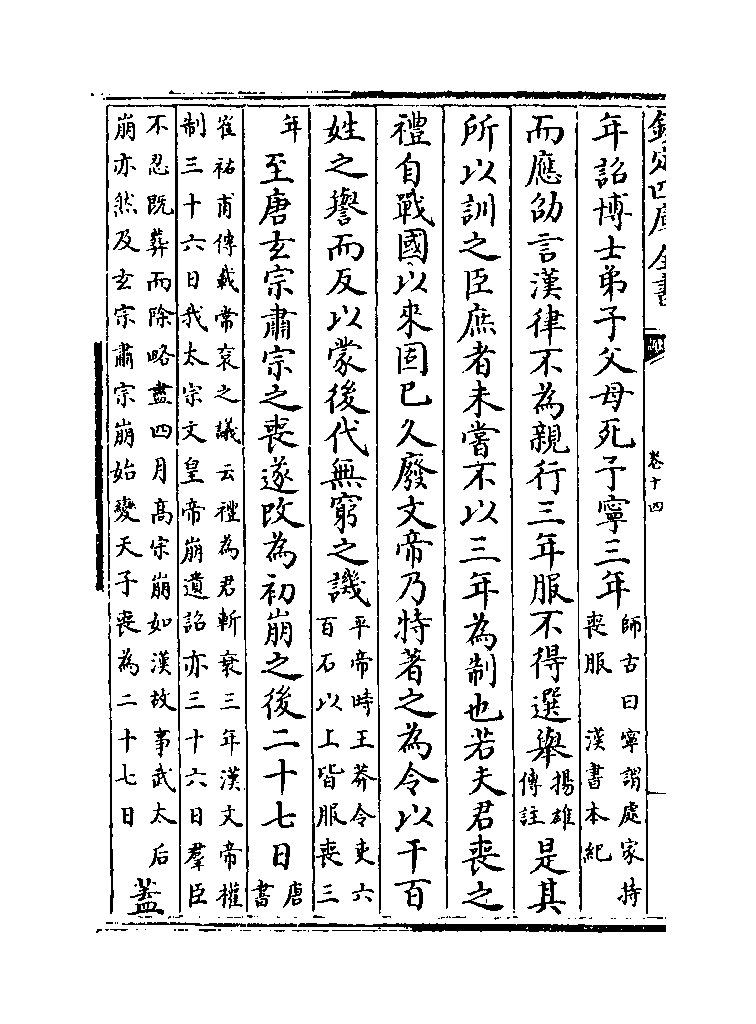 欽定四庫全書
卷十四
年詔博士弟子父母死予寧三年師古曰寧謂處家持喪服 漢書本紀
而應劭言漢律不為親行三年服不得選舉揚雄傳註是其
所以訓之臣庶者未嘗不以三年為制也若夫君喪之
禮自戰國以來固已久廢文帝乃特著之為令以干百
姓之譽而反以蒙後代無窮之譏平帝時王莽令吏六百石以上皆服喪三
年至唐玄宗肅宗之喪遂改為初崩之後二十七日唐書
崔祐甫傳載常衮之議云禮為君斬衰三年漢文帝權
制三十六日我太宗文皇帝崩遺詔亦三十六日羣臣
不忍既葬而除略盡四月高宗崩如漢故事武太后
崩亦然及玄宗肅宗崩始變天子喪為二十七日 蓋